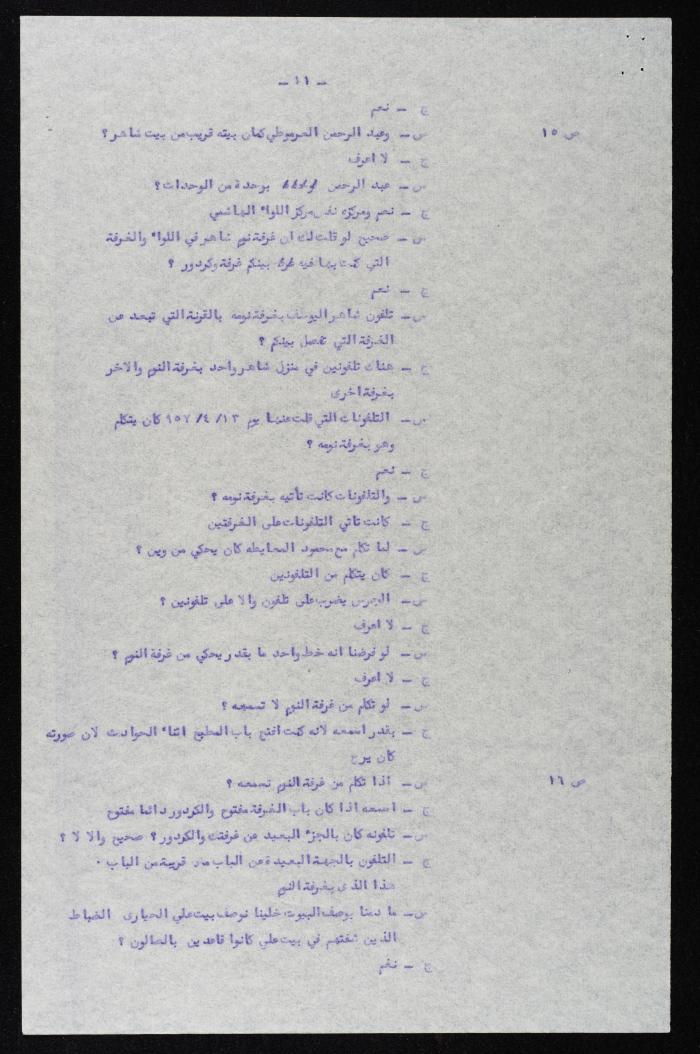 - ١١ -
ج - نعم
ص ١٥
س - وعبد الرحمن العرموطي كمان بيته قريب من بيت شاهر ؟
ج - لا اعرف
س - عبد الرحمن بوحدة من الوحدات ؟
ج - نعم ومركزه نفس مركز اللواء الهاشمي
س - صحيح لو قلت لك ان غرفة نوم شاهر في اللواء والغرفة
التي كنت بها فيه بينكم غرفة وكردور ؟
ج - نعم
س - تلفون شاهر اليوسف بغرفة نومه بالقرنة التي تبعد عن
الغرفة التي تفصل بينكم ؟
ج - هناك تلفونين في منزل شاهر واحد بغرفة النوم والاخر
بغرفة اخرى
س - التلفونات التي قلت عنها يوم ١٣/ ٤/ ٩٥٧ كان يتكلم
وهو بغرفة نومه ؟
ج - نعم
س - والتلفونات كانت تأتيه بغرفة نومه ؟
ج - كانت تاتي التلفونات على الغرفتين
س - لما تكلم مع محمود المعايطه كان يحكي من وين ؟
ج - كان يتكلم من التلفونين
س - الجرس يضرب على تلفون والا على تلفونين ؟
ج - لا اعرف
س - لو فرضنا انه خط واحد ما بقدر يحكي من غرفة النوم ؟
ج - لا اعرف
س - لو تكلم من غرفة النوم لا تسمعه ؟
ج - بقدر اسمعه لانه كنت افتح باب المطبخ اثناء الحوادث لان صورته
كان يرج
ص ١٦
س - اذا تكلم من غرفة النوم تسمعه ؟
ج - اسمعه اذا كان باب الغرفة مفتوح والكردور دائما مفتوح
س - تلفونه كان بالجزء البعيد عن غرفتك والكردور ؟ صحيح والا لا ؟
ج - التلفون بالجهة البعيدة عن الباب قريبة من الباب .
هذا الذى بغرفة النوم
س - ما دمنا بوصف البيوت خلينا نوصف بيت علي الحيارى الضباط
الذين شفتهم في بيت علي كانوا قاعدين بالصالون ؟
ج - نعم